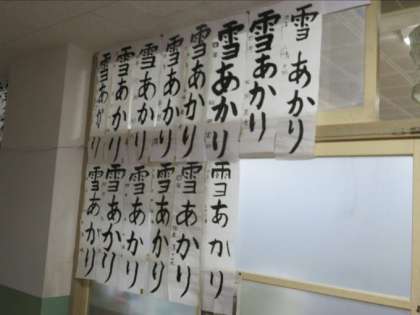 雪あかり
雪あかり
雪あかり
雪あかり
雪あかり
雪あかり
雪あかり
雪あかり
雪あかり
雪あかり
雪あかり
雪あかり
雪あかり
雪あかり